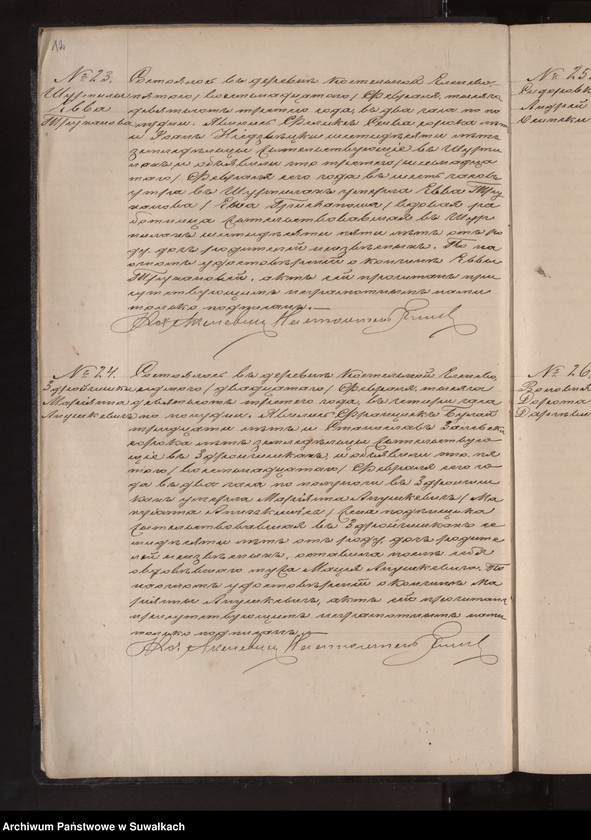 12
№ 23.
Шурпилы
Евва
Труханова
Состоялось въ деревнѣ Костельной Еленево,
пятого /восемнадцатого/ Февраля, тысяча
девятьсотъ третего года, въ два часа по по-
лудни. Явились Францъ Слива сорока
и Іоанъ Нѣдзвѣцки шестидѣсяти лѣтъ
земледѣльцы жительствующіе въ Шурпи-
лахъ и объявили что третего /шеснадца-
того/ Февраля сего года въ шесть часовъ
утра въ Шурпилахъ умерла Евва Тру-
ханова / Ewa Truchanowa / вдовая ра-
ботница жительствовавшая въ Шур-
пилахъ шестидѣсяти пяти лѣтъ отъ ро-
ду, дочь родителей неизвѣстныхъ. По на-
стномъ удостовѣреніи о кончинѣ Еввы
Трухановой, актъ сей прочитанъ при-
сутствующимъ неграмотнымъ нами
только подписанъ.—
Настоятель
№ 24.
Здройчишки
Маріята
Анушкевичъ
Состоялось въ деревнѣ Костельной Еленево,
седмого /двадцатого/ Февраля, тысяча
девятьсотъ третего года, въ четыре часа
по полудни. Явились Францишекъ Бугай
тридцати лѣтъ и Станиславъ
сорока лѣтъ земледѣльцы жительствую-
щіе въ Здройчишкахъ, и объявили что пя-
того /восемнадцатого/ Февраля сего го-
да въ два часа по полуночи въ Здройчиш-
кахъ умерла Маріята Анушкевичъ /
жительствовавшая въ Здройчишкахъ се-
мидѣсяти лѣтъ отъ роду, дочь родите-
лей неизвѣстныхъ, оставила послѣ себя
овдовѣвшого мужа Мацея Анушкевича. По
настномъ удостовѣреніи о кончинѣ Ма-
ріяты Анушкевичъ, актъ сей прочитанъ
присутствующимъ неграмотнымъ нами
только подписанъ.—
Настоятель
№ 25.
Сидоровка
Андрей
№ 26
Дорота
Archiwum Państwowe w Suwałkach